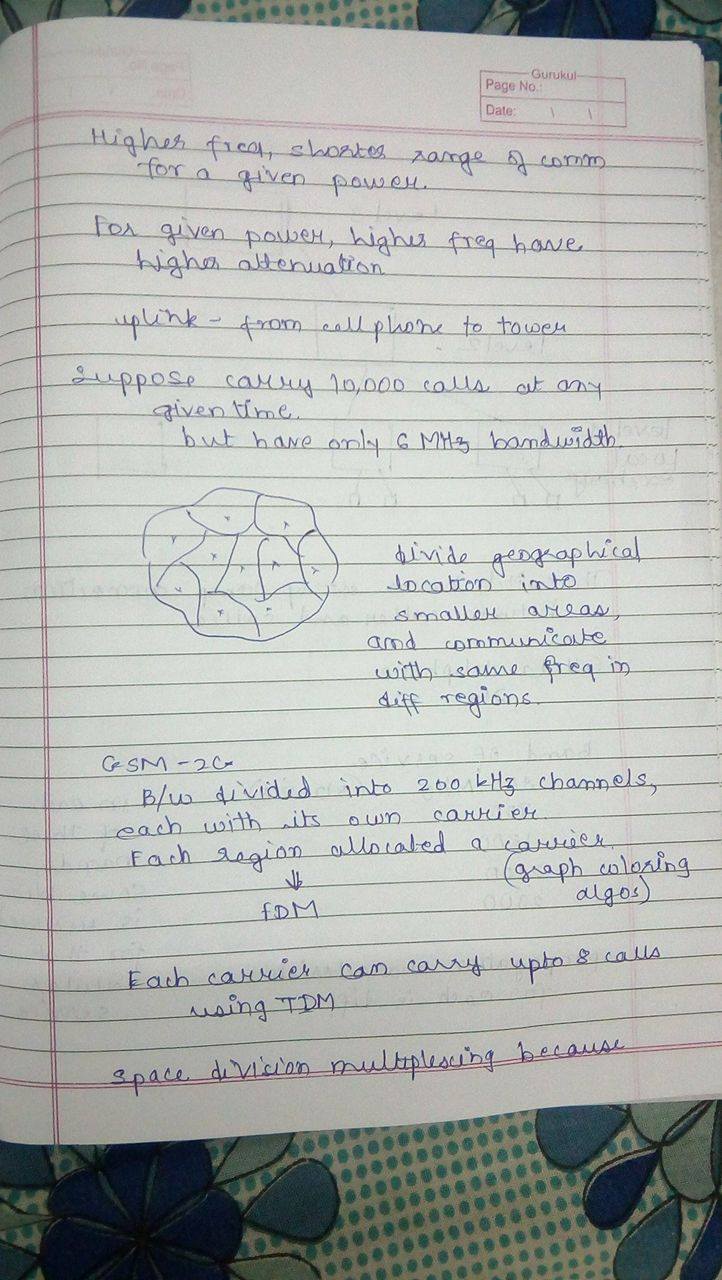 Gurukul
Page No.:
Date:
Higher freq, shorter range of comm
for a given power.
For given power, higher freq have
higher attenuation
uplink - from cell phone to tower
Suppose carry 10,000 calls at any
given time.
but have only 6 MHz bandwidth.
divide geographical
location into
smaller areas,
and communicate
with same freq in
diff regions.
GSM - 2G
B/w divided into 200 kHz channels,
each with its own carrier.
Each region allocated a carrier.
(graph coloring
algos)
⇓
FDM
Each carrier can carry upto 8 calls
using TDM
space division multiplexing because